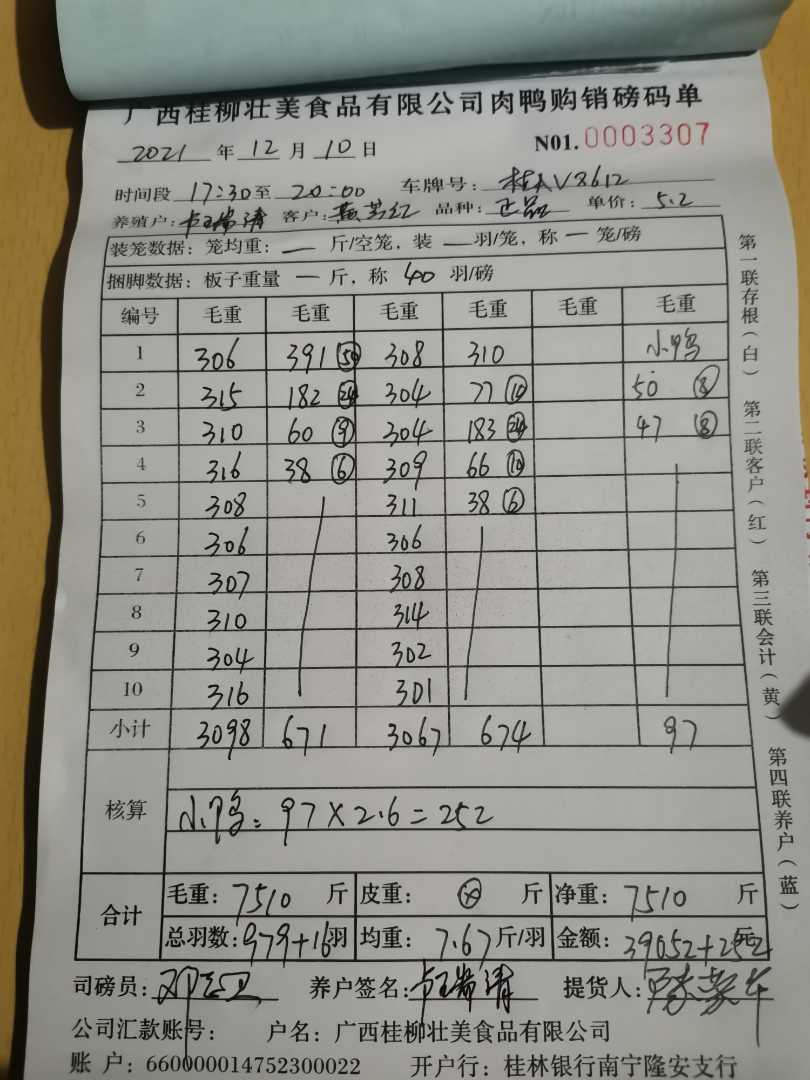 广西桂柳壮美食品有限公司肉鸭购销磅码单
2021 年 12 月 10 日 N01. 0003307
时间段 17:30 至 20:00 车牌号: 桂AV8612
养殖户: 瑞清 客户: 品种: 正品 单价: 5.2
装笼数据: 笼均重: — 斤/空笼, 装 — 羽/笼, 称 — 笼/磅
捆脚数据: 板子重量 — 斤, 称 40 羽/磅
编号 毛重 毛重 毛重 毛重 毛重 毛重
1 306 391 50 308 310 小鸭
2 315 182 24 304 77 10 50 8
3 310 60 9 304 183 24 47 8
4 316 38 6 309 66 10
5 308 311 38 6
6 306 306
7 307 308
8 310 314
9 304 302
10 316 301
小计 3098 671 3067 674 97
核算 小鸭: 97×2.6=252
合计 毛重: 7510 斤 皮重: ⊗ 斤 净重: 7510 斤
总羽数: 979+16 羽 均重: 7.67 斤/羽 金额: 39052+252 元
司磅员: 养户签名: 瑞清 提货人:
公司汇款账号: 户名: 广西桂柳壮美食品有限公司
账 户: 660000014752300022 开户行: 桂林银行南宁隆安支行
第一联存根(白)
第二联客户(红)
第三联会计(黄)
第四联养户(蓝)